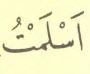 اَسْلَمْتُ